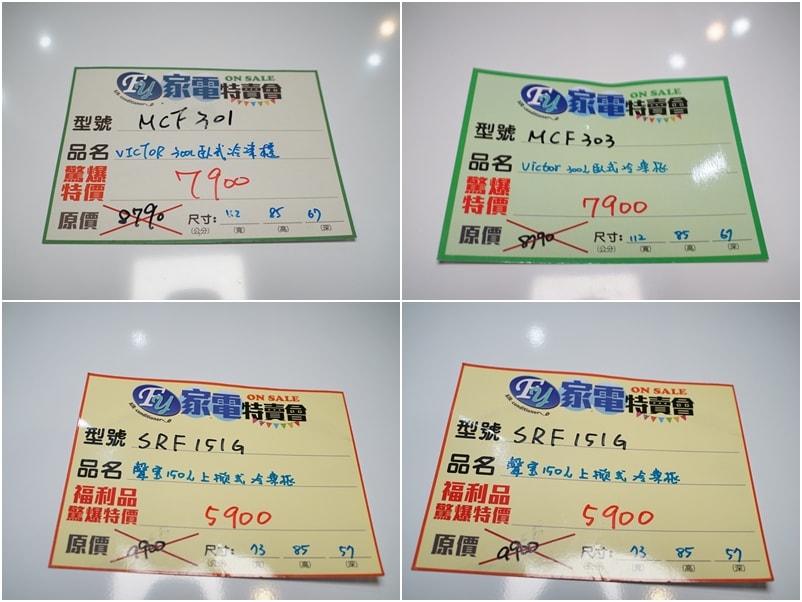 Fu 家電 ON SALE
air conditioner 特賣會
型號 MCF 301
品名 VICTOR 300L臥式冷凍櫃
驚爆特價 7900
原價 8790 尺寸: 112 85 67
(公分) (寬) (高) (深)
Fu 家電 ON SALE
air conditioner 特賣會
型號 MCF 303
品名 Victor 300L臥式冷凍柜
驚爆特價 7900
原價 8790 尺寸: 112 85 67
(公分) (寬) (高) (深)
Fu 家電 ON SALE
air conditioner 特賣會
型號 SRF 151G
品名 聲宝150L上掀式冷凍柜
福利品
驚爆特價 5900
原價 9900 尺寸: 73 85 57
(公分) (寬) (高) (深)
Fu 家電 ON SALE
air conditioner 特賣會
型號 SRF 151G
品名 聲宝150L上掀式冷凍柜
福利品
驚爆特價 5900
原價 9900 尺寸: 73 85 57
(公分) (寬) (高) (深)